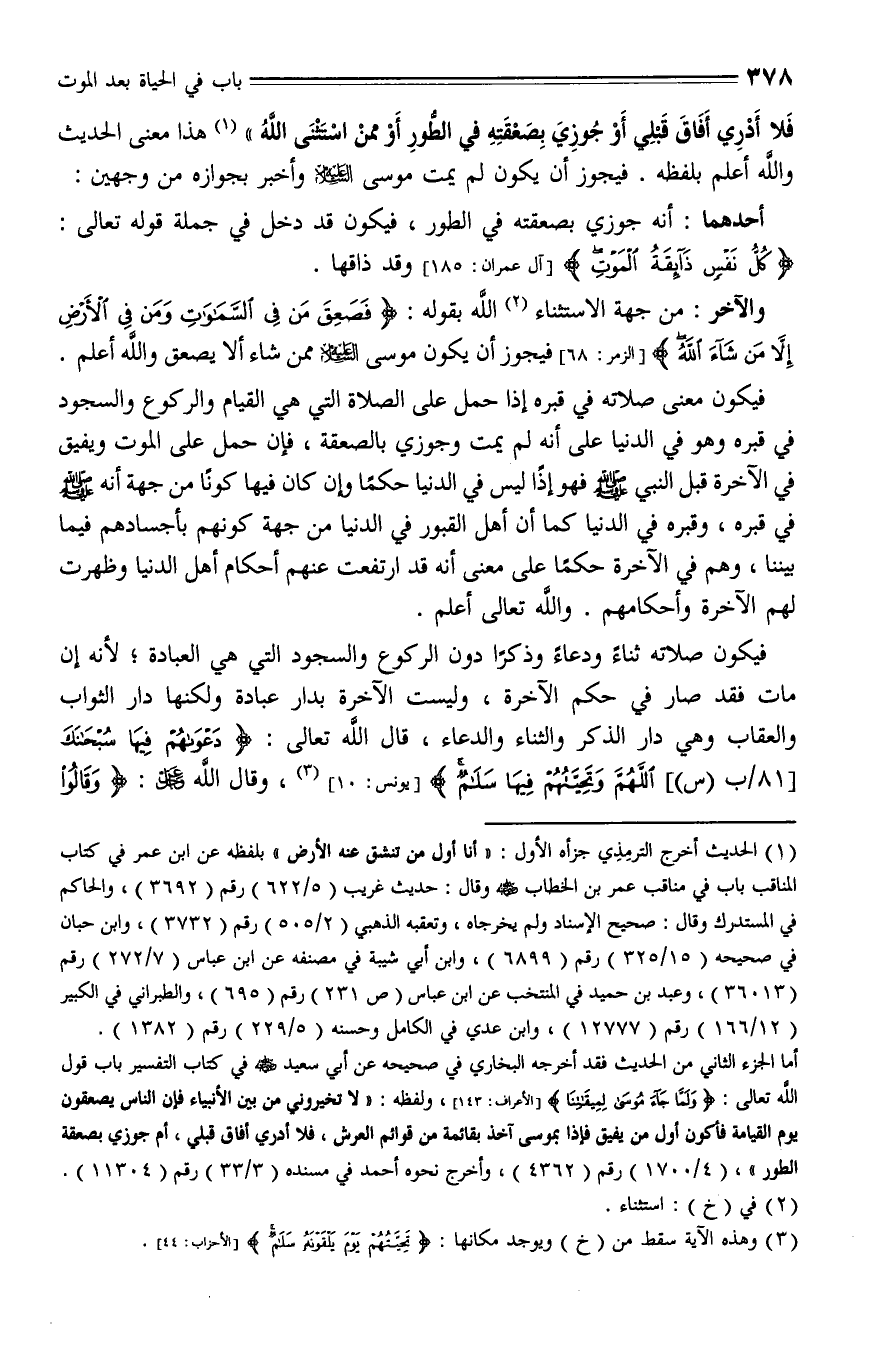 ٣٧٨ باب في الحياة بعد الموت
فَلا أَدْرِي أَفَاقَ قَبْلِي أَوْ جُوزِيَ بِصَعْقَتِهِ في الطُّورِ أَوْ ممنْ اسْتَثْنَى اللَّهُ » (١) هذا معنى الحديث
واللَّه أعلم بلفظه . فيجوز أن يكون لم يمت موسى عليه السلام وأخبر بجوازه من وجهين :
أحدهما : أنه جوزي بصعقته في الطور ، فيكون قد دخل في جملة قوله تعالى :
﴿ كُلُّ نَفْسٍ ذَآئِقَةُ ٱلْمَوْتِۖ ﴾ [آل عمران: ١٨٥] وقد ذاقها .
والآخر : من جهة الاستثناء (٢) اللَّه بقوله : ﴿ فَصَعِقَ مَن فِى ٱلسَّمَٰوَٰتِ وَمَن فِى ٱلْأَرْضِ
إِلَّا مَن شَآءَ ٱللَّهُۖ ﴾ [الزمر: ٦٨] فيجوز أن يكون موسى عليه السلام ممن شاء ألا يصعق واللَّه أعلم .
فيكون معنى صلاته في قبره إذا حمل على الصلاة التي هي القيام والركوع والسجود
في قبره وهو في الدنيا على أنه لم يمت وجوزي بالصعقة ، فإن حمل على الموت ويفيق
في الآخرة قبل النبي ﷺ فهو إذًا ليس في الدنيا حكمًا وإن كان فيها كونًا من جهة أنه ﷺ
في قبره ، وقبره في الدنيا كما أن أهل القبور في الدنيا من جهة كونهم بأجسادهم فيما
بيننا ، وهم في الآخرة حكمًا على معنى أنه قد ارتفعت عنهم أحكام أهل الدنيا وظهرت
لهم الآخرة وأحكامهم . واللَّه تعالى أعلم .
فيكون صلاته ثناءً ودعاءً وذكرًا دون الركوع والسجود التي هي العبادة ؛ لأنه إن
مات فقد صار في حكم الآخرة ، وليست الآخرة بدار عبادة ولكنها دار الثواب
والعقاب وهي دار الذكر والثناء والدعاء ، قال اللَّه تعالى : ﴿ دَعْوَىٰهُمْ فِيهَا سُبْحَٰنَكَ
[٨١/ب (س)] ٱللَّهُمَّ وَتَحِيَّتُهُمْ فِيهَا سَلَٰمٌۚ ﴾ [يونس: ١٠] (٣) ، وقال اللَّه عز وجل : ﴿ وَقَالُوا۟
(١) الحديث أخرج الترمذي جزأه الأول : « أنا أول من تنشق عنه الأرض » بلفظه عن ابن عمر في كتاب
المناقب باب في مناقب عمر بن الخطاب رضي الله عنه وقال : حديث غريب ( ٦٢٢/٥ ) رقم ( ٣٦٩٢ ) ، والحاكم
في المستدرك وقال : صحيح الإسناد ولم يخرجاه ، وتعقبه الذهبي ( ٥٠٥/٢ ) رقم ( ٣٧٣٢ ) ، وابن حبان
في صحيحه ( ٣٢٥/١٥ ) رقم ( ٦٨٩٩ ) ، وابن أبي شيبة في مصنفه عن ابن عباس ( ٢٧٢/٧ ) رقم
( ٣٦٠١٣ ) ، وعبد بن حميد في المنتخب عن ابن عباس ( ص ٢٣١ ) رقم ( ٦٩٥ ) ، والطبراني في الكبير
( ١٦٦/١٢ ) رقم ( ١٢٧٧٧ ) ، وابن عدي في الكامل وحسنه ( ٢٢٩/٥ ) رقم ( ١٣٨٢ ) .
أما الجزء الثاني من الحديث فقد أخرجه البخاري في صحيحه عن أبي سعيد رضي الله عنه في كتاب التفسير باب قول
اللَّه تعالى : ﴿ وَلَمَّا جَآءَ مُوسَىٰ لِمِيقَٰتِنَا ﴾ [الأعراف: ١٤٣] ، ولفظه : « لا تخيروني من بين الأنبياء فإن الناس يصعقون
يوم القيامة فأكون أول من يفيق فإذا بموسى آخذ بقائمة من قوائم العرش ، فلا أدري أفاق قبلي ، أم جوزي بصعقة
الطور » ، ( ١٧٠٠/٤ ) رقم ( ٤٣٦٢ ) ، وأخرج نحوه أحمد في مسنده ( ٣٣/٣ ) رقم ( ١١٣٠٤ ) .
(٢) في ( خ ) : استثناء .
(٣) وهذه الآية سقط من ( خ ) ويوجد مكانها : ﴿ تَحِيَّتُهُمْ يَوْمَ يَلْقَوْنَهُۥ سَلَٰمٌۚ ﴾ [الأحزاب: ٤٤] .